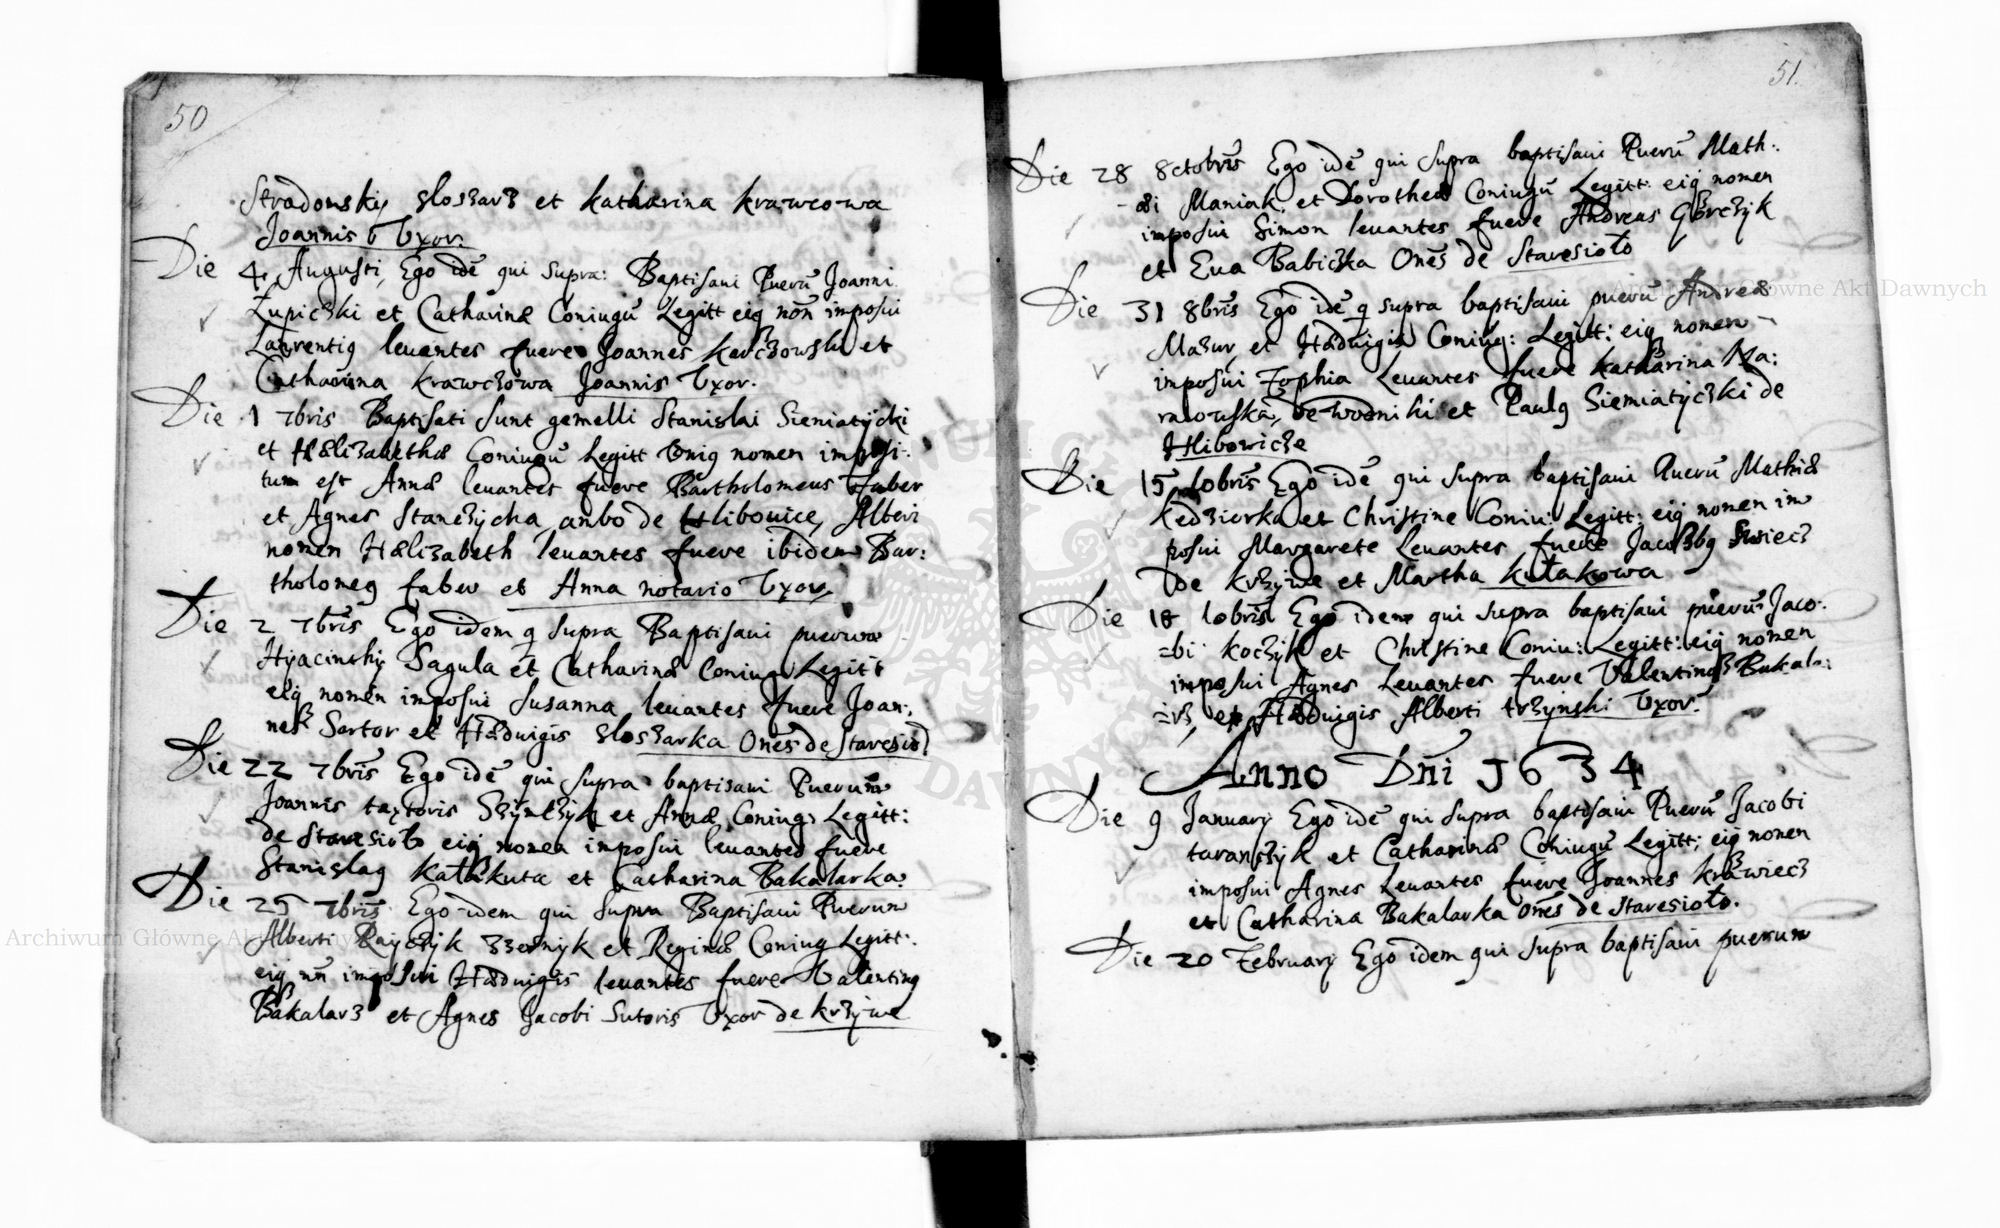 50
Stradomskij Sloszarz et Katharina Krawcowa
Joannis Vxor.
Die 4 Augusti, Ego idē qui supra: Baptisaui Puerū Joanni
Zupiczki et Catharinæ Coniugū Legitt eiq nōn imposui
Laurentiq leuantes fuere Joannes Karczowski et
Catharina Krawczowa Joannis Vxor.
Die 1 7bris Baptisati sunt gemelli Stanislai Sieniatÿcki
et Hælizabethæ Coniugū Legitt Vniq nomen imposi-
tum est Anna leuantes fuere Bartholomeus Faber
et Agnes Stanczycha ambo de Hlibouice, Alteri
nomen Hælizabeth leuantes fuere ibidem Bar:
tholomeq faber et Anna notario Vxor
Die 2 7bris Ego idem q supra Baptisaui puerum
Hyacinthij Sagula et Catharinæ Coniug Legitt
eiq nomen imposui Susanna leuantes fuere Joan:
nes Sartor et Hæduigis Sloszarka Onēs de Staresiol
Die 22 7bris Ego idē qui supra baptisaui Puerum
Joannis taxtoris et Annæ Coniug: Legitt:
de Staresioło eiq nomen imposui leuantes fuere
Stanislaq Kałakuta et Catharina Bakalarka:
Die 25 7bris Ego idem qui supra Baptisaui Puerum
Alberti et Reginæ Coniug Legitt:
eiq nn imposui Hæduigis leuantes fuere Valentinq
Bakalarz et Agnes Jacobi Sutoris Vxor de Krzÿwe
51.
Die 28 8ctobris Ego idē qui supra baptisaui Puerū Math:
-æi Maniak et Dorotheæ Coniugū Legitt: eiq nomen
imposui Simon leuantes fuere Andreas Gorczÿk
et Eua Babiczka Onēs de Staresioło
Die 31 8bris Ego idē q supra baptisaui puerū Andreæ
Mazur et Hæduigis Coniug: Legitt: eiq nomen
imposui Zophia Leuantes fuere Katharina Ma:
et Paulq Siemiatÿczki de
Hlibowicze
Die 15 10bris Ego idē qui supra baptisaui Puerū Mathiæ
Kedziorka et Christine Coniu: Legitt: eiq nomen im
posui Margarete Leuantes fuere Jacobq
de Krzÿwe et Martha Kułakowa
Die 18 10bris Ego idem qui supra baptisaui puerū Jaco:
=bi Koczÿk et Christine Coniu: Legitt: eiq nomen
imposui Agnes Leuantes fuere Valentinq Bakala:
=rz, et Hæduigis Alberti trzÿnski Vxor.
Anno Dn̄i 1634
Die 9 Januarij Ego idē qui supra baptisaui Puerū Jacobi
taranczÿk et Catharinæ Coniugū Legitt: eiq nomen
imposui Agnes Leuantes fuere Joannes Krawiecz
et Catharina Bakalarka onēs de Staresioło.
Die 20 February Ego idem qui supra baptisaui puerum
Archiwum Główne Akt Dawnych